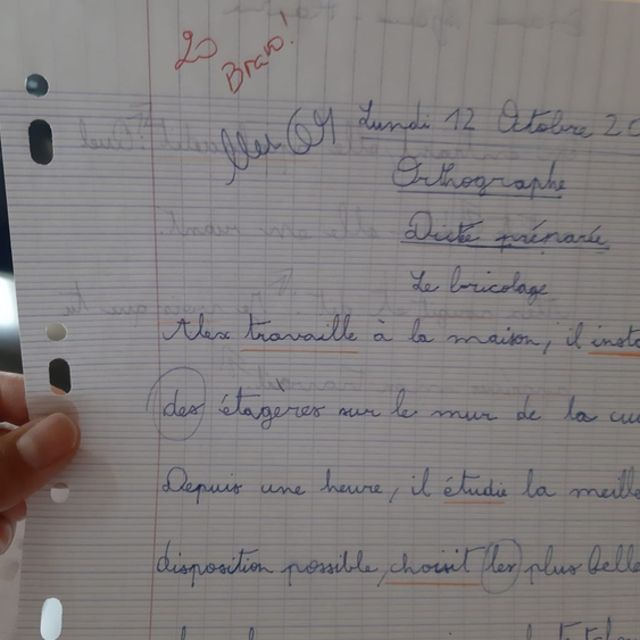 20
Bravo!
Lundi 12 Octobre 20
Orthographe
Dictée préparée
Le bricolage
Alex travaille à la maison, il insta
des étagères sur le mur de la cui
Depuis une heure, il étudie la meille
disposition possible, choisit les plus belle